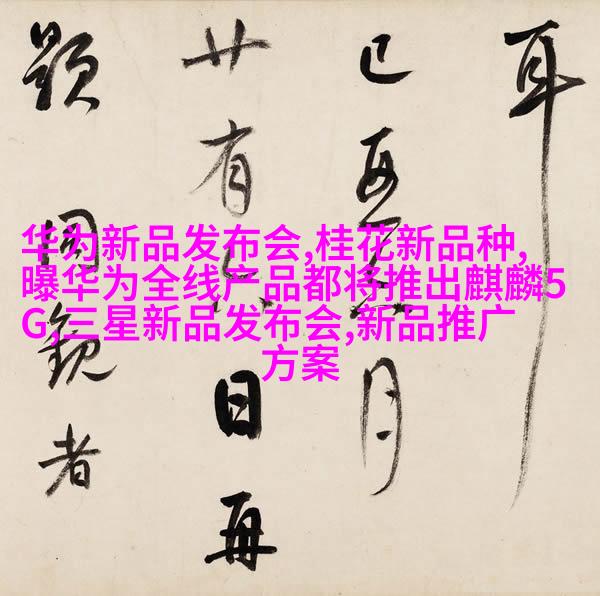 华为新品发布会,桂花新品种,
曝华为全线产品都将推出麒麟5
G,三星新品发布会,新品推广
方案
耳
已月
廿有日再
題同觀者